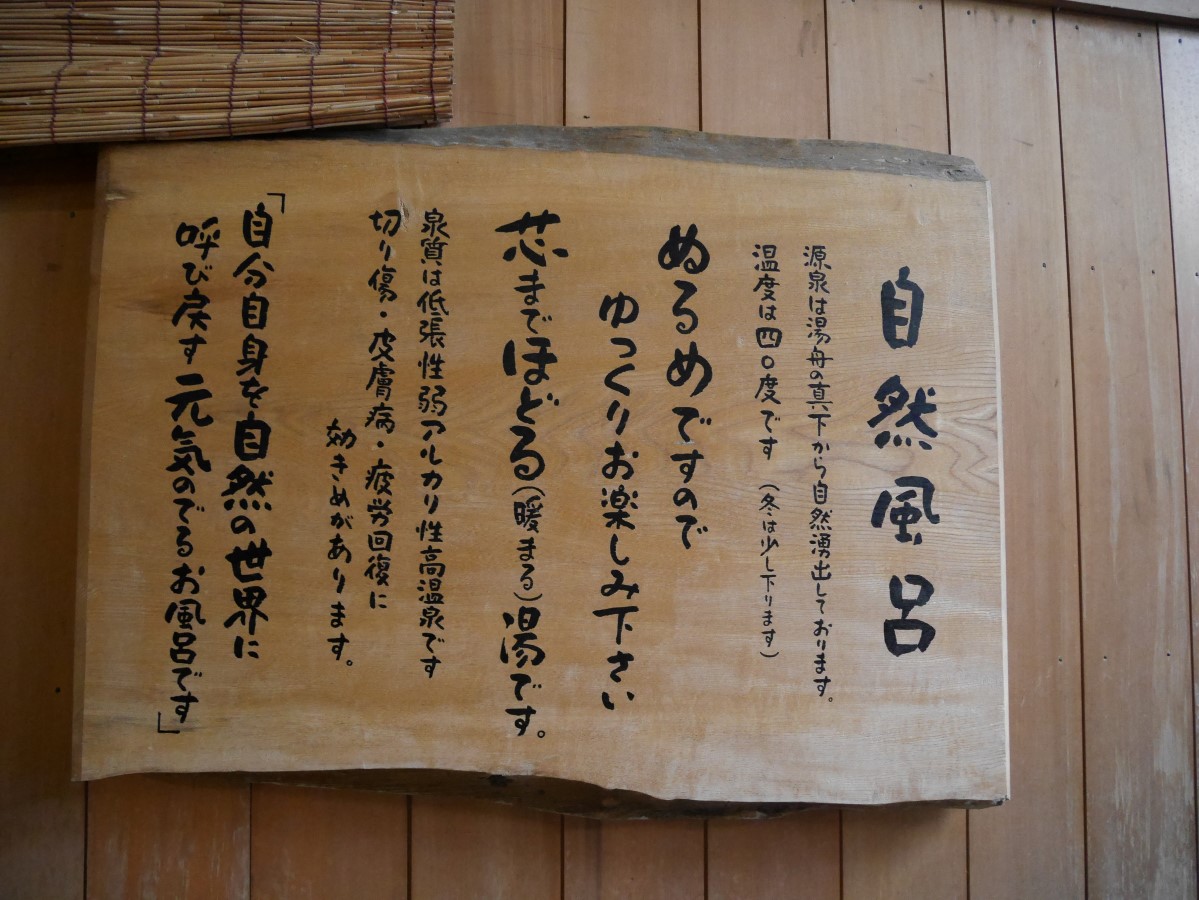 自然風呂
源泉は湯舟の真下から自然湧出しております。
温度は四〇度です（冬は少し下ります）
ぬるめですので
ゆっくりお楽しみ下さい
芯までほどる（暖まる）湯です。
泉質は低張性弱アルカリ性高温泉です
切り傷・皮膚病・疲労回復に
効きめがあります。
「自分自身を自然の世界に
呼び戻す元気のでるお風呂です」